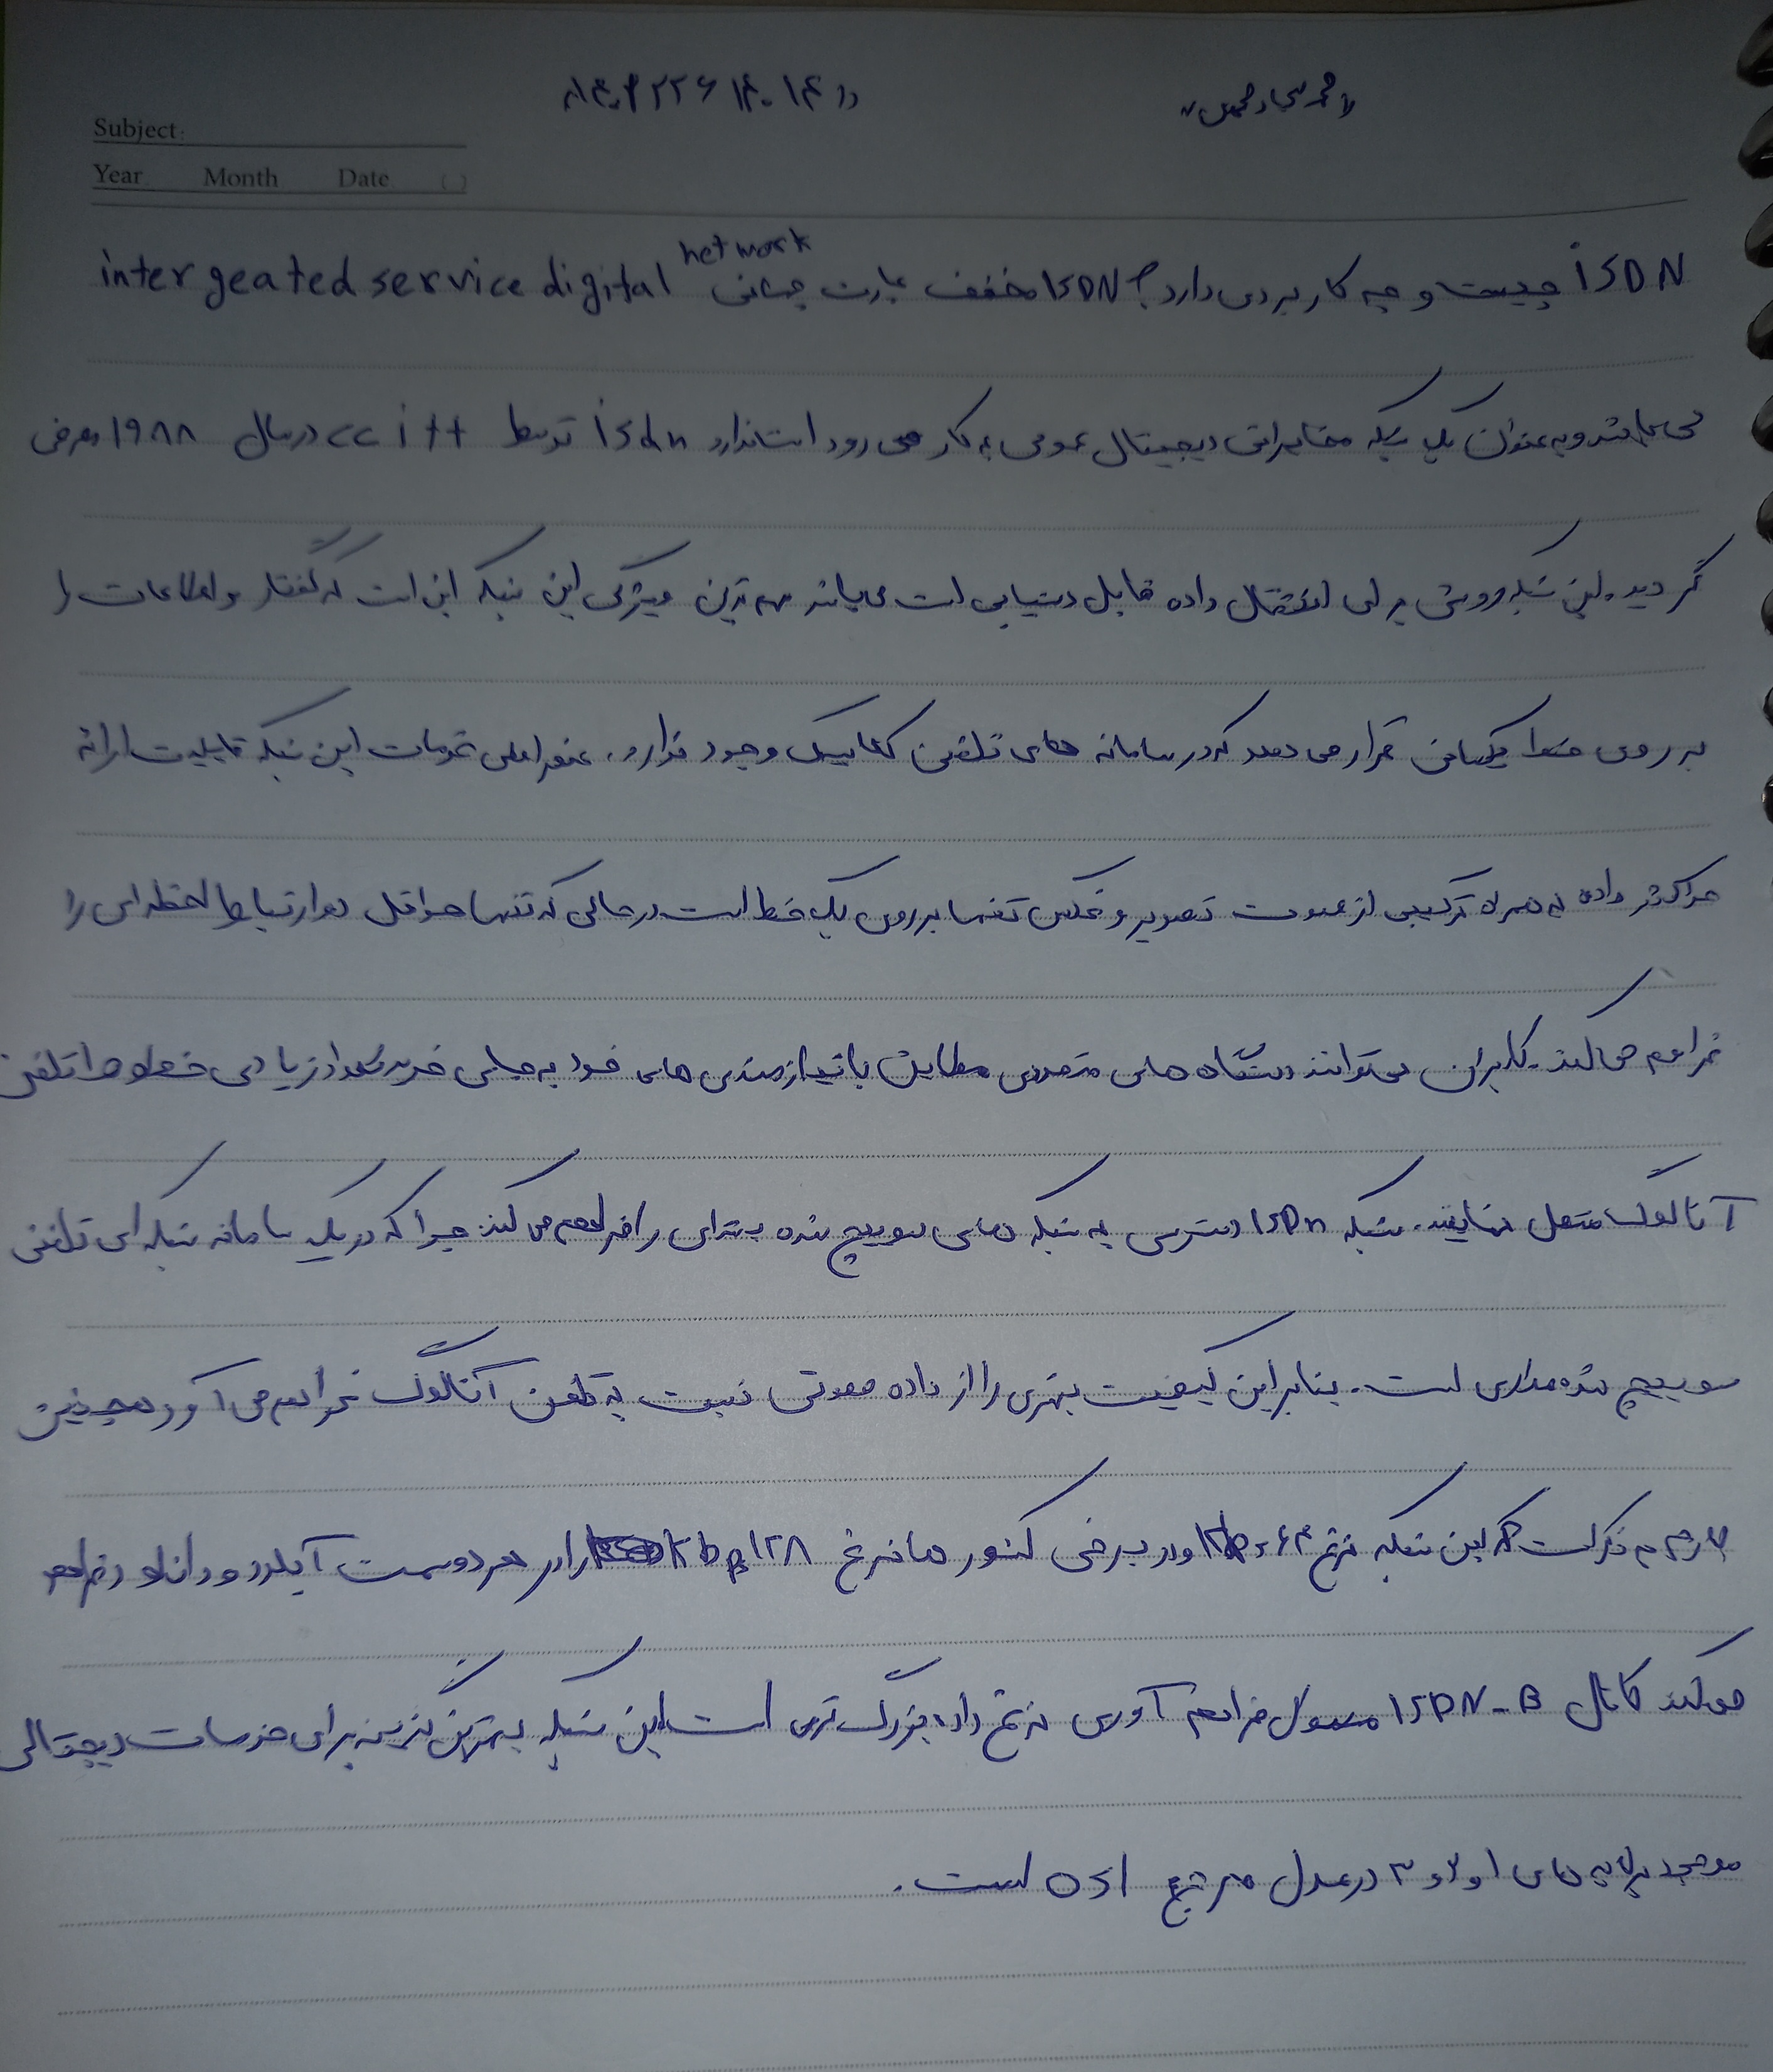 Subject:
Year Month Date ( )
iSDN چیست و چه کاربردی دارد؟ ISDN مخفف عبارت جهانی intergeated service digital network
می‌باشد و به عنوان یک شبکه مخابراتی دیجیتال عمومی به کار می رود استاندارد isdn توسط ccitt در سال ۱۹۸۸ معرفی
گردید. این شبکه روشی برای انتقال داده قابل دستیابی است می‌باشد مهم ترین ویژگی این شبکه این است که گفتار و اطلاعات را
بر روی خط یکسانی قرار می دهد که در سامانه های تلفن کلاسیک وجود ندارد. عنصر اصلی خدمات این شبکه قابلیت ارائه
حداکثر داده به همراه ترکیبی از صوت تصویر و فکس تنها بر روی یک خط است در حالی که تنها حداقل دو ارتباط لحظه ای را
فراهم می کند. کاربران می‌توانند دستگاه های متعددی مطابق با نیازمندی های خود به جای خرید تعداد زیادی خطوط تلفن
آنالوگ متصل نمایند. شبکه ISDn دسترسی به شبکه های سوییچ شده بسته‌ای را فراهم می کند چرا که در یک سامانه شبکه ای تلفنی
سوییچ شده مداری است. بنابراین کیفیت بهتری را از داده صوتی نسبت به تلفن آنالوگ فراهم می آورد همچنین
لازم به ذکر است که این شبکه نرخ ۶۴ و در برخی کشور ها نرخ ۱۲۸ kbp را در هر دو سمت آپلود و دانلود فراهم
می‌کند کانال ISDN-B مسول فراهم آوری نرخ داده بزرگ تری است این شبکه بهترین گزینه برای خدمات دیجیتالی
موجود بر لایه های ۱ و ۲ و ۳ در مدل مرجع OSI است.